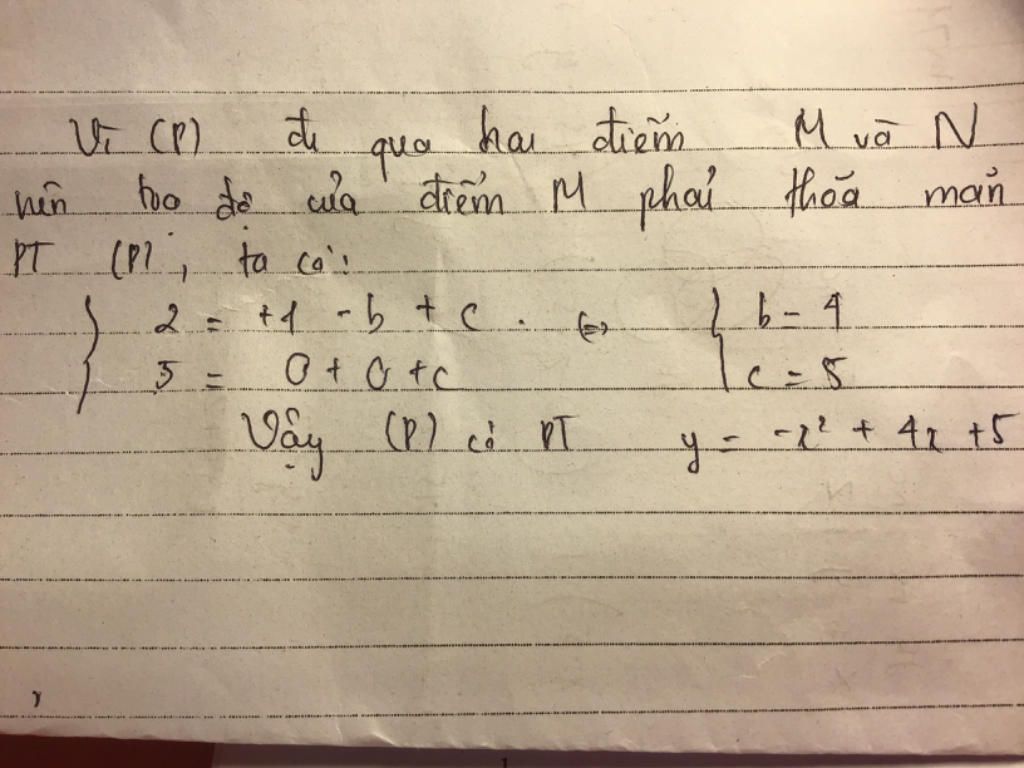 Vì (P) đi qua hai điểm M và N
nên tọa độ của điểm M phải thỏa mản
PT (P), ta có:
{ 2 = +1 - b + c . <=> { b = 4
{ 5 = 0 + 0 + c { c = 5
Vậy (P) có PT y = -x² + 4x + 5